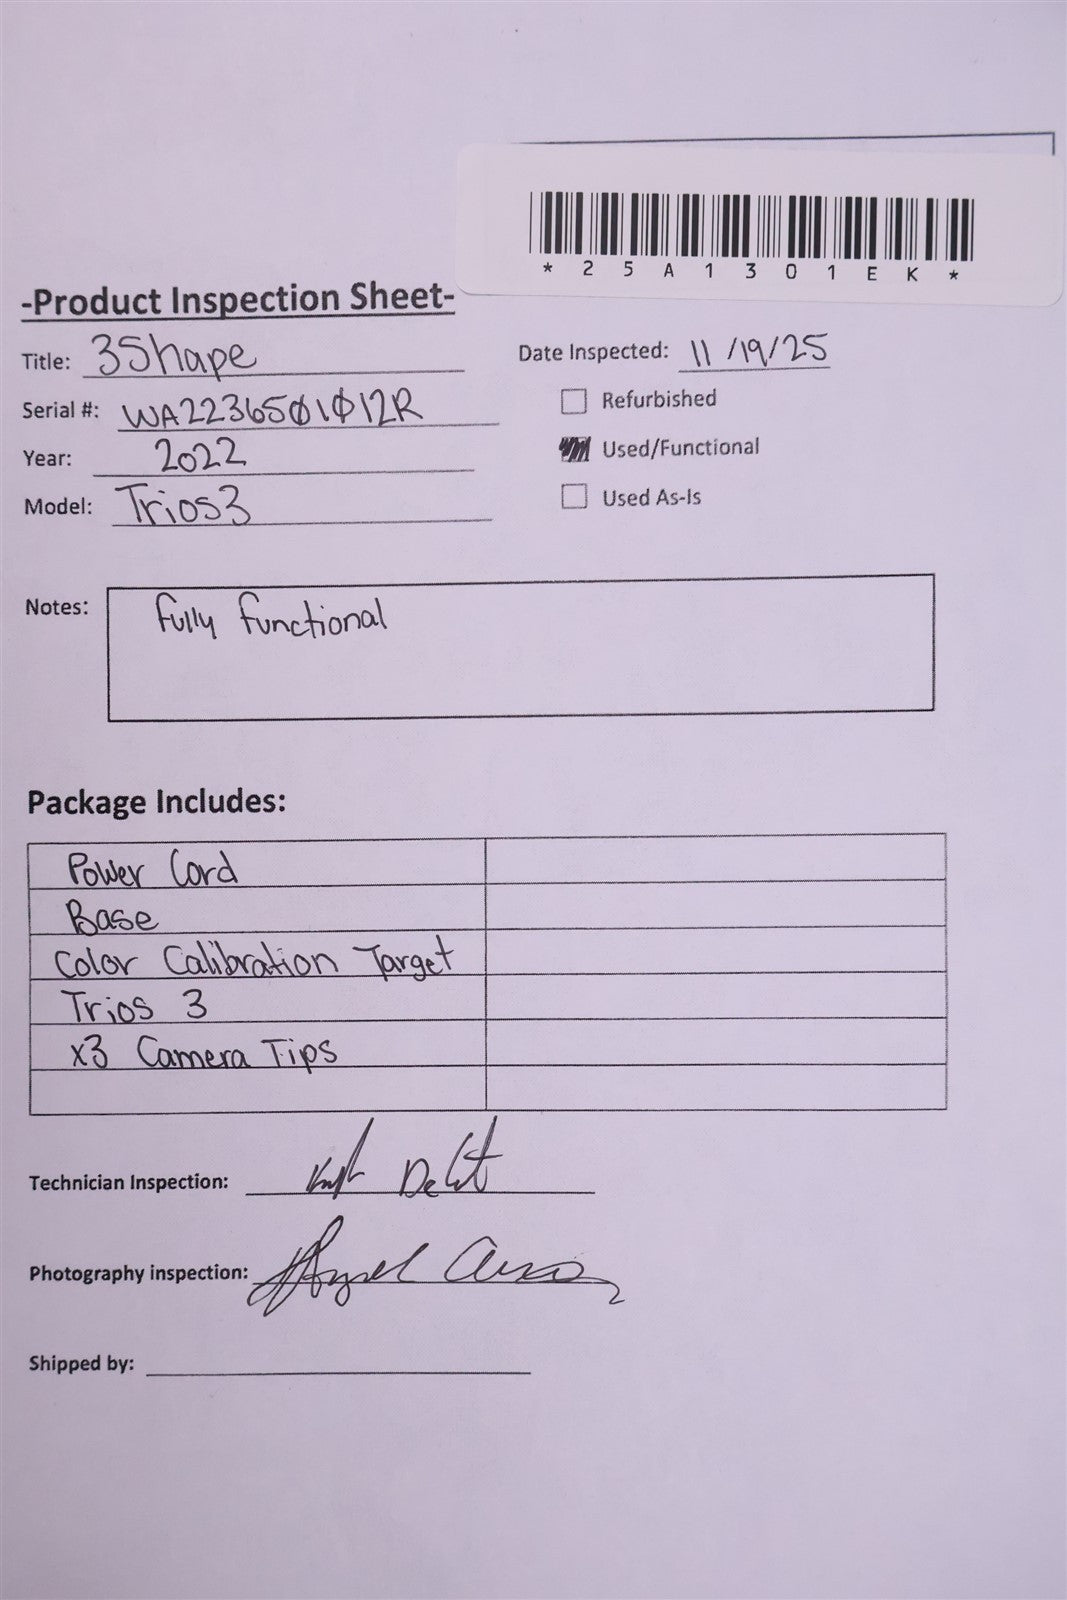 *25A1301EK*
-Product Inspection Sheet-
Title: 3Shape
Date Inspected: 11/19/25
Serial #: WA2236501012R
Refurbished
Year: 2022
Used/Functional
Model: Trios3
Used As-Is
Notes: Fully Functional
Package Includes:
Power Cord
Base
Color Calibration Target
Trios 3
x3 Camera Tips
Technician Inspection:
Photography inspection:
Shipped by: